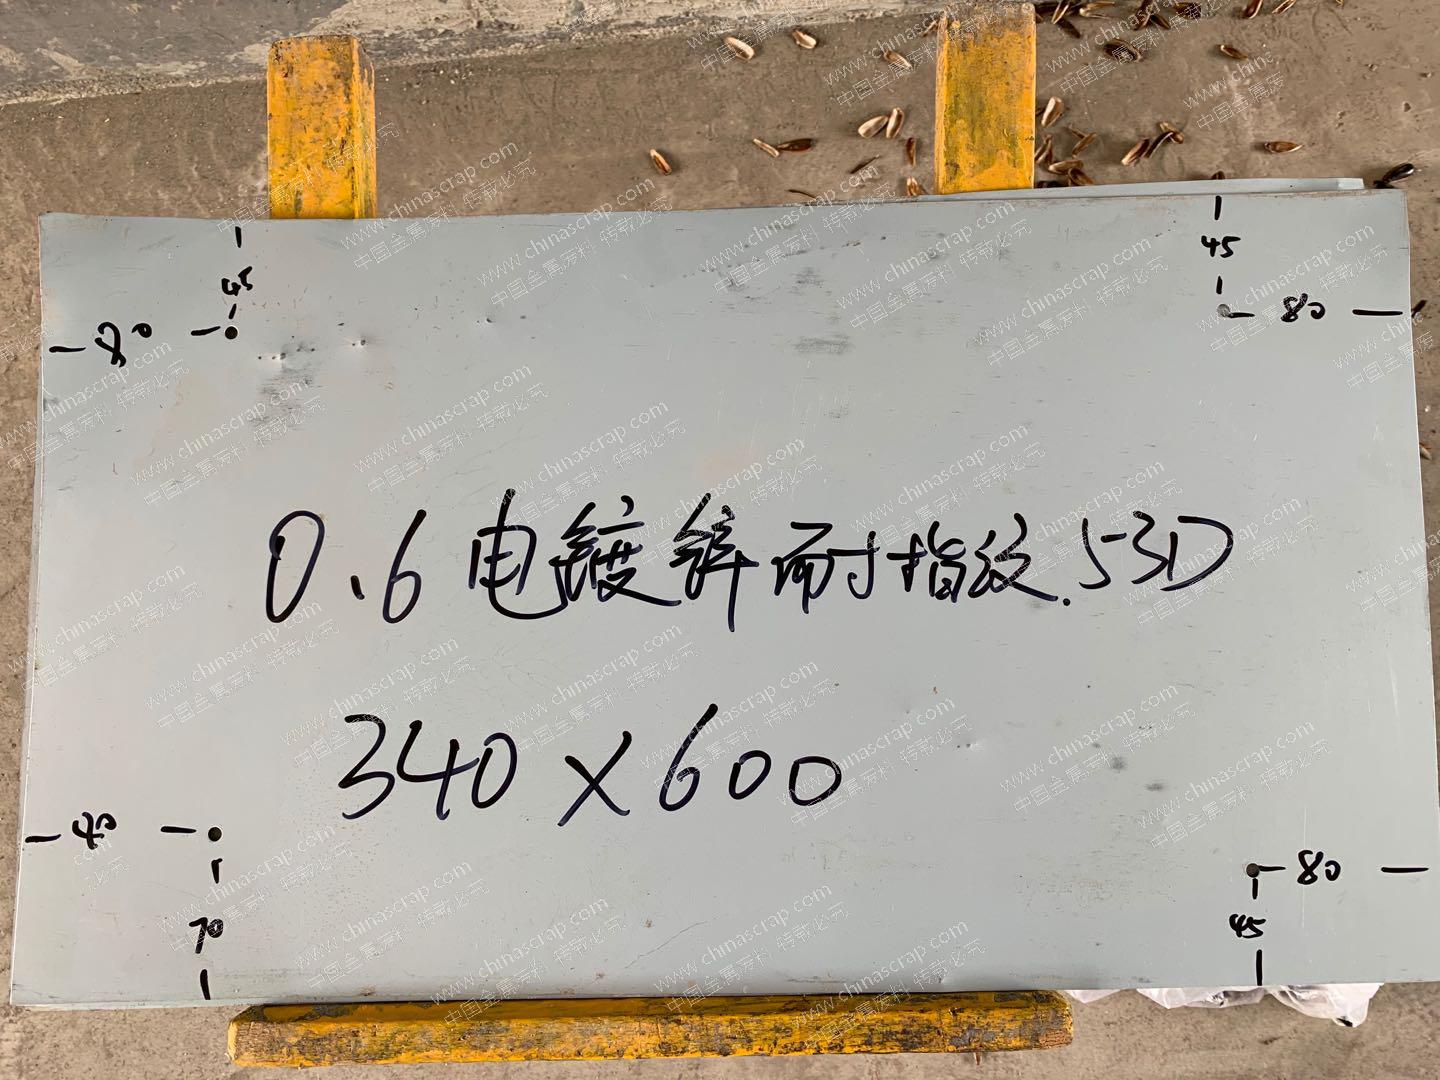 45
45
80
80
0.6电镀锌耐指纹.53D
340×600
80
70
45
www.chinascrap.com
中国金属废料 转载必究